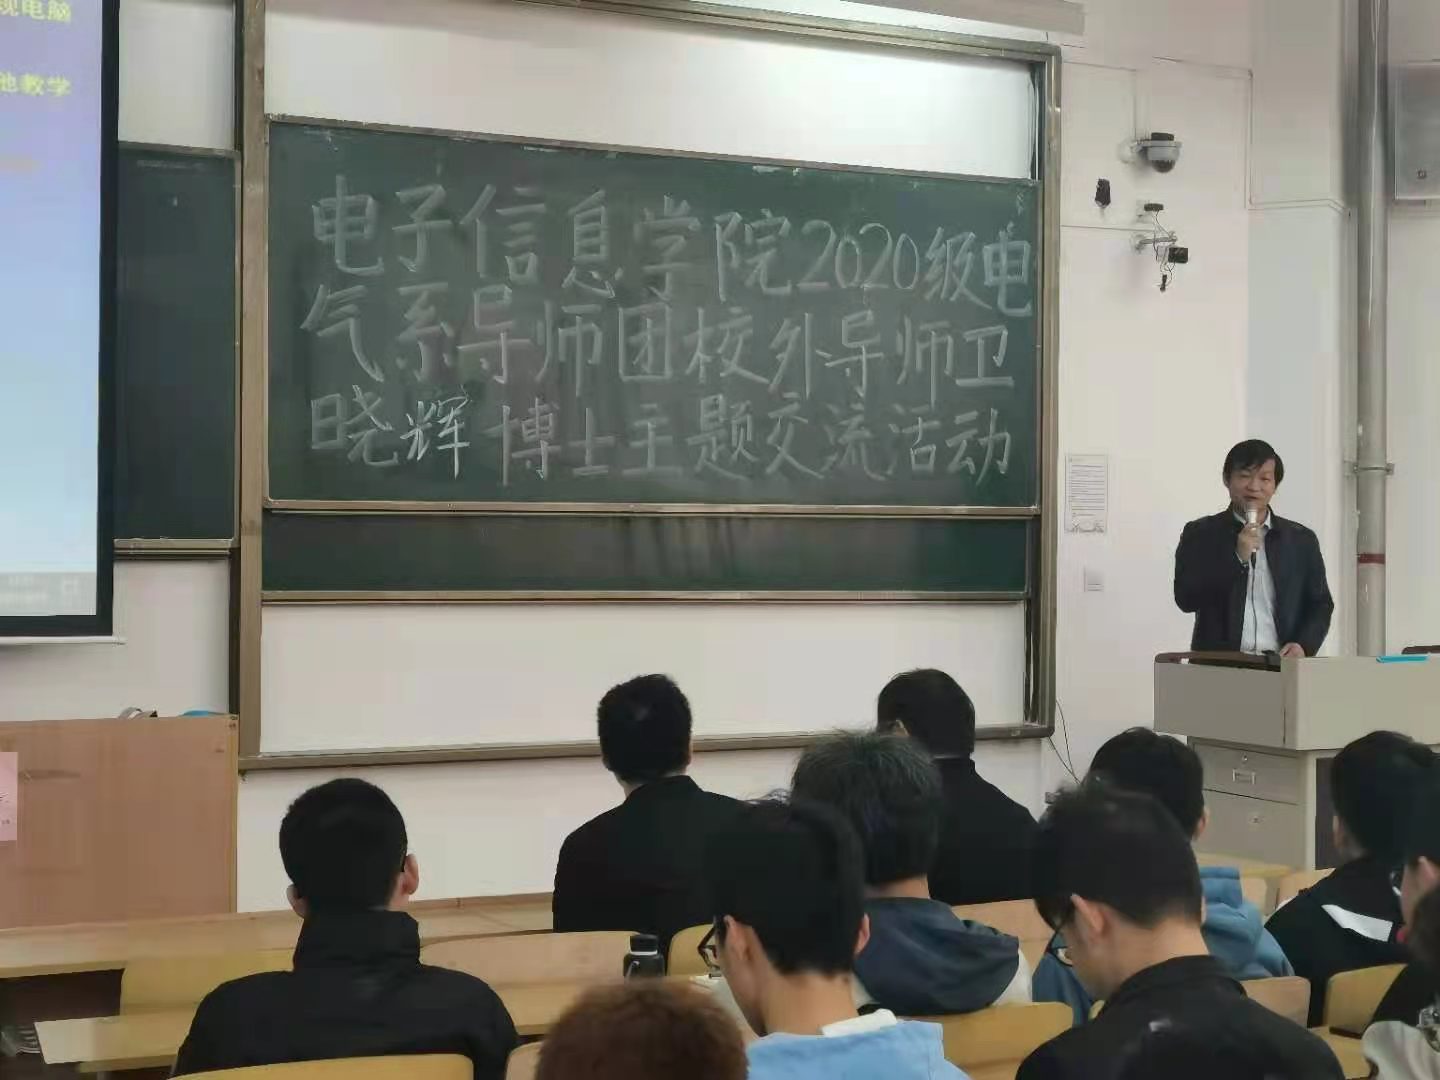 视电脑
他教学
电子信息学院2020级电
气系导师团校外导师卫
晓辉博士主题交流活动